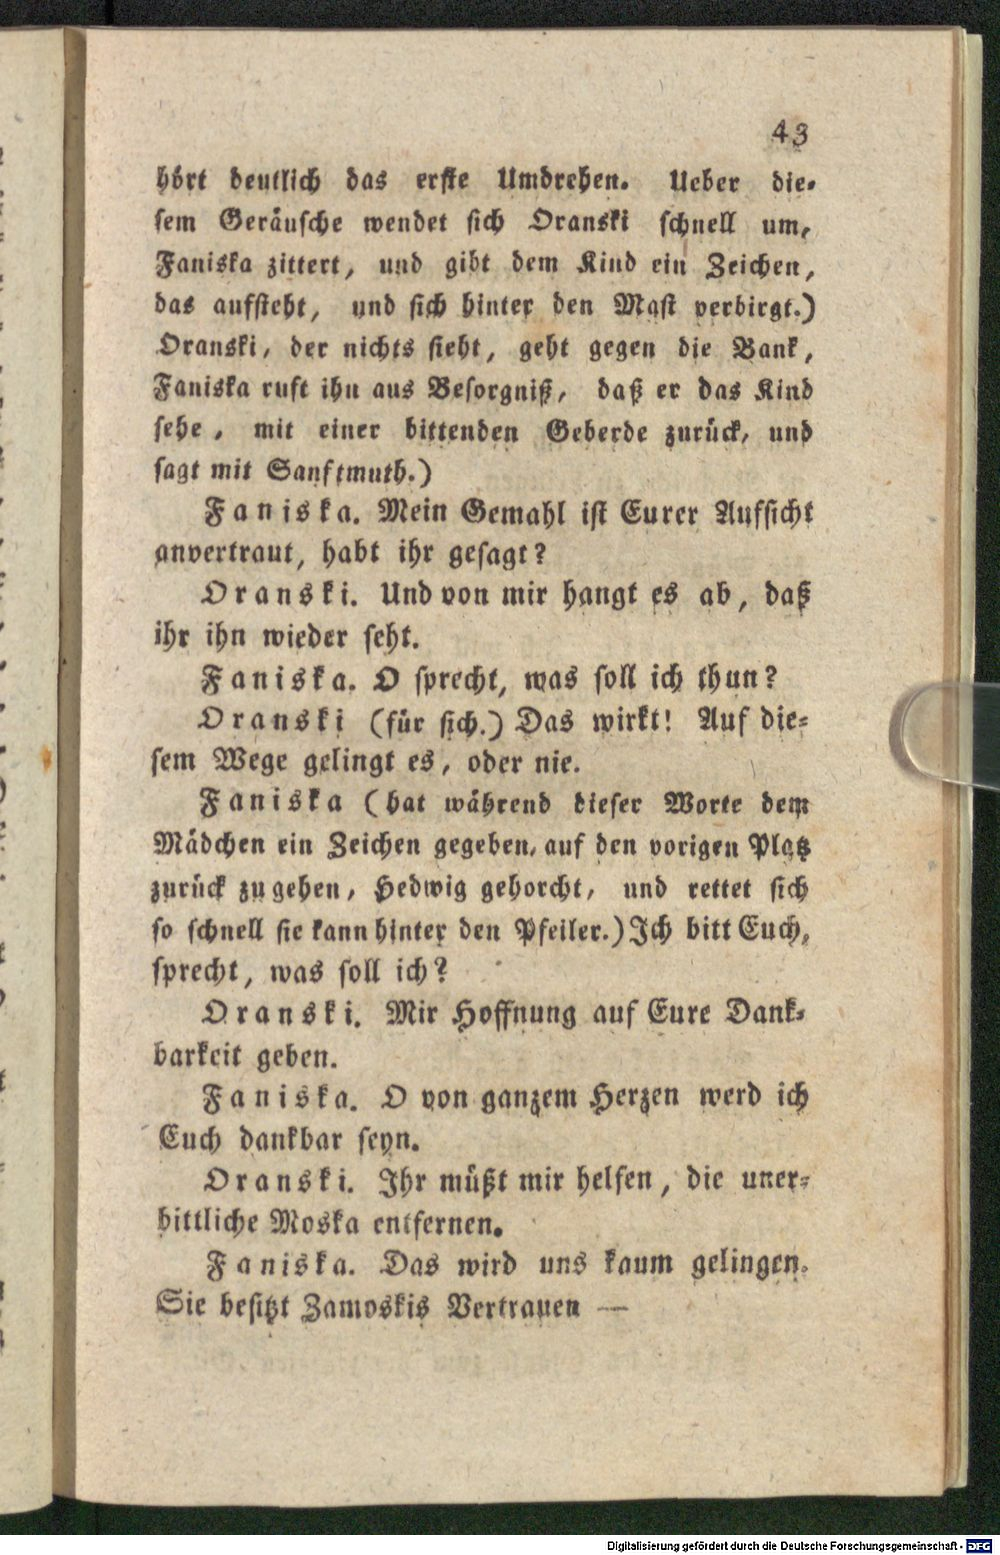 43
hört deutlich das erste Umdrehen. Ueber die-
sem Geräusche wendet sich Oranski schnell um,
Faniska zittert, und gibt dem Kind ein Zeichen,
das aufsteht, und sich hinter den Mast verbirgt.)
Oranski, der nichts sieht, geht gegen die Bank,
Faniska ruft ihn aus Besorgniß, daß er das Kind
sehe, mit einer bittenden Geberde zurück, und
sagt mit Sanftmuth.)
Faniska. Mein Gemahl ist Eurer Aufsicht
anvertraut, habt ihr gesagt?
Oranski. Und von mir hangt es ab, daß
ihr ihn wieder seht.
Faniska. O sprecht, was soll ich thun?
Oranski (für sich.) Das wirkt! Auf die-
sem Wege gelingt es, oder nie.
Faniska (hat während dieser Worte dem
Mädchen ein Zeichen gegeben, auf den vorigen Platz
zurück zu gehen, Hedwig gehorcht, und rettet sich
so schnell sie kann hinter den Pfeiler.) Ich bitt Euch,
sprecht, was soll ich?
Oranski. Mir Hoffnung auf Eure Dank-
barkeit geben.
Faniska. O von ganzem Herzen werd ich
Euch dankbar seyn.
Oranski. Ihr müßt mir helfen, die uner-
bittliche Moska entfernen.
Faniska. Das wird uns kaum gelingen.
Sie besitzt Zamoskis Vertrauen —
Digitalisierung gefördert durch die Deutsche Forschungsgemeinschaft - DFG